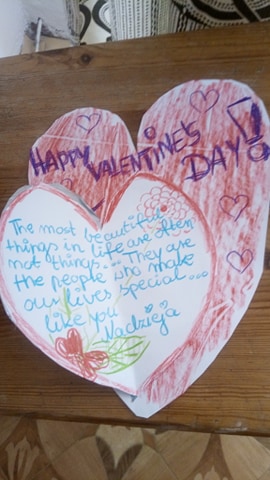 HAPPY VALENTINE'S DAY!
The most beautiful
things in life are often
not things... They are
the people who make
our lives special...
like you
Nadzieja